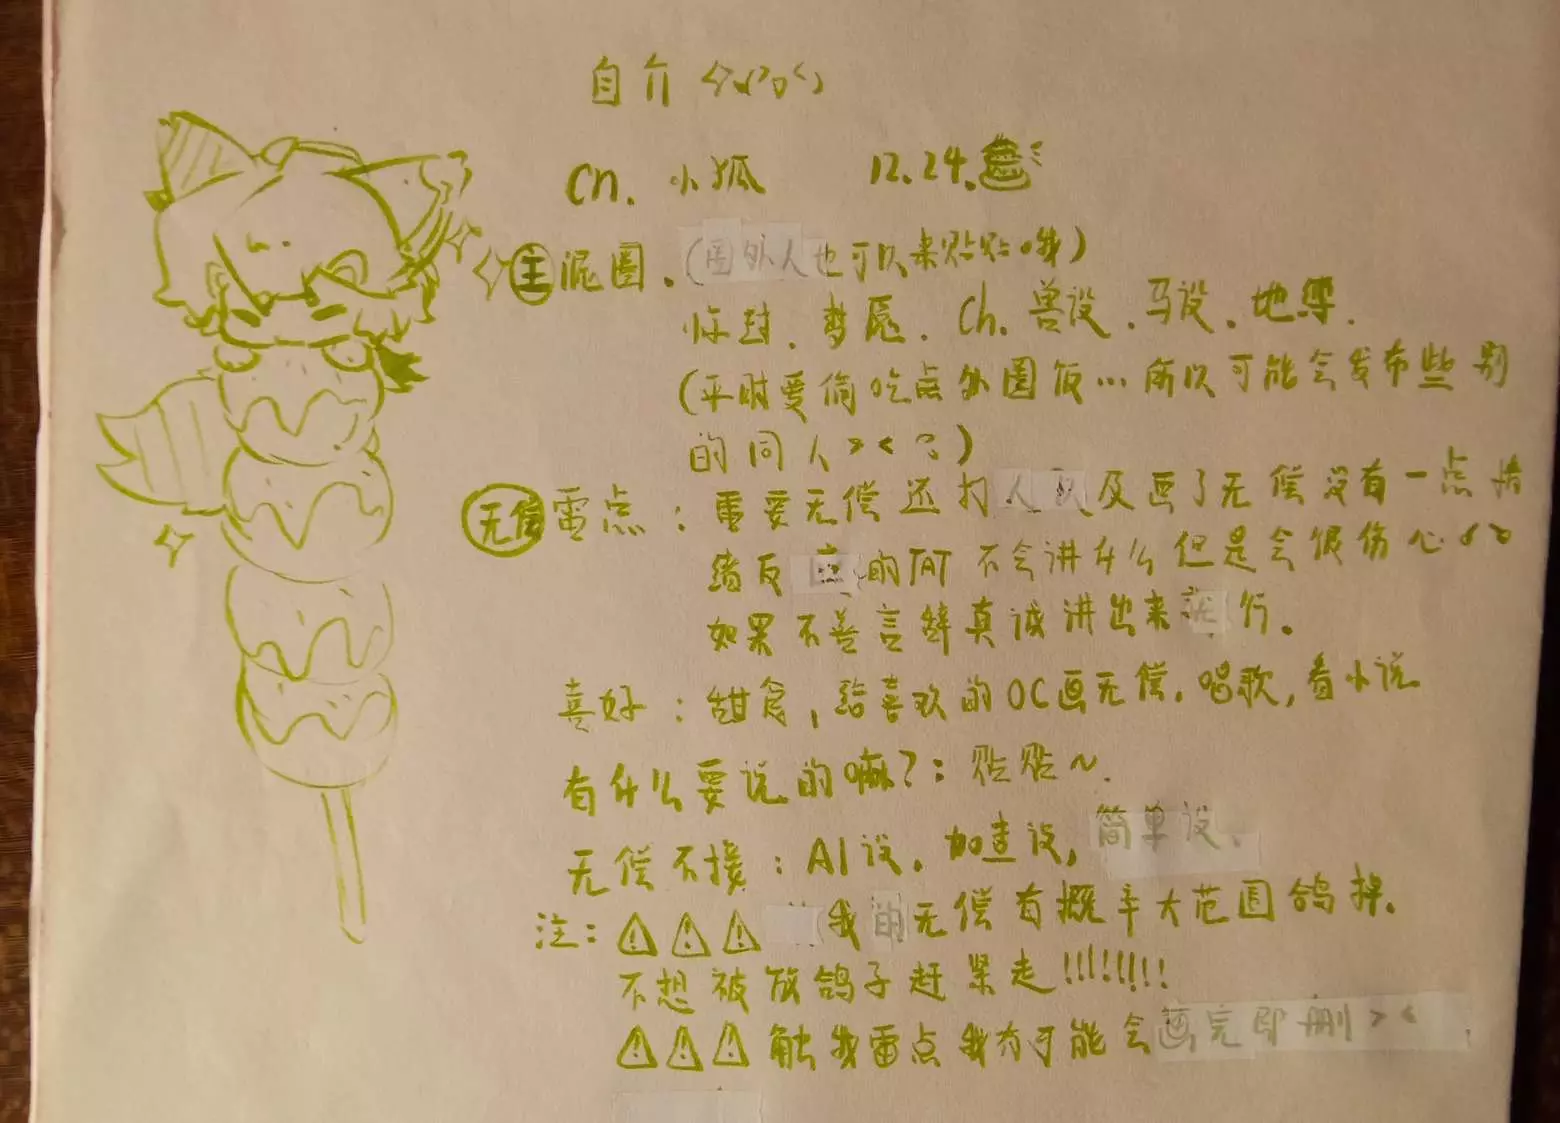 自介
Cn. 小狐 12.24.
主 泥圈. (圈外人也可以来贴贴哦)
怀封. 梦愿. Ch. 兽设. 马设. 地.
(平时爱偷吃点外圈饭…所以可能会发布些别
的同人><)
无偿 雷点：要无偿还打人及画了无偿没有一点情
绪反的 不会讲什么但是会很伤心
如果不善言辞真诚讲出来就行。
喜好：甜食，给喜欢的OC画无偿. 唱歌, 看小说
有什么要说的嘛?：贴贴~.
无偿不接：AI设. 加查设, 简单设.
注：⚠⚠⚠ 我的无偿有概率大范围鸽掉.
不想被放鸽子赶紧走!!!!!!!!
⚠⚠⚠触我雷点我有可能会画完即删><